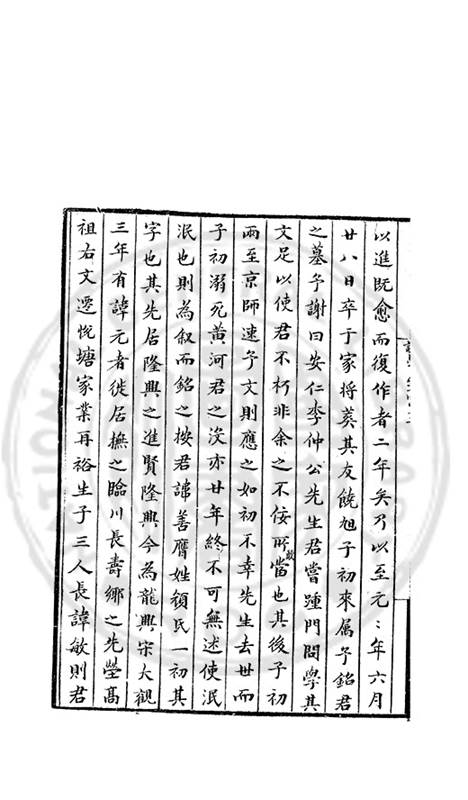 以進既愈而復作者二年矣乃以至元二年六月
廿八日卒于家將葬其友饒旭子初來属予銘君
之墓予謝曰安仁李仲公先生君嘗踵門問學其
文足以使君不朽非余之不佞所敢當也其後子初
兩至京師速予文則應之如初不幸先生去世而
子初溺死黄河君之沒亦廿年終不可無述使泯
泯也則為叙而銘之按君諱善膺姓
氏一初其
字也其先居隆興之進賢隆興今為龍興宋大觀
三年有諱元者徙居撫之臨川長壽鄉之先塋高
祖右文遷悅塘家業再裕生子三人長諱敏則君